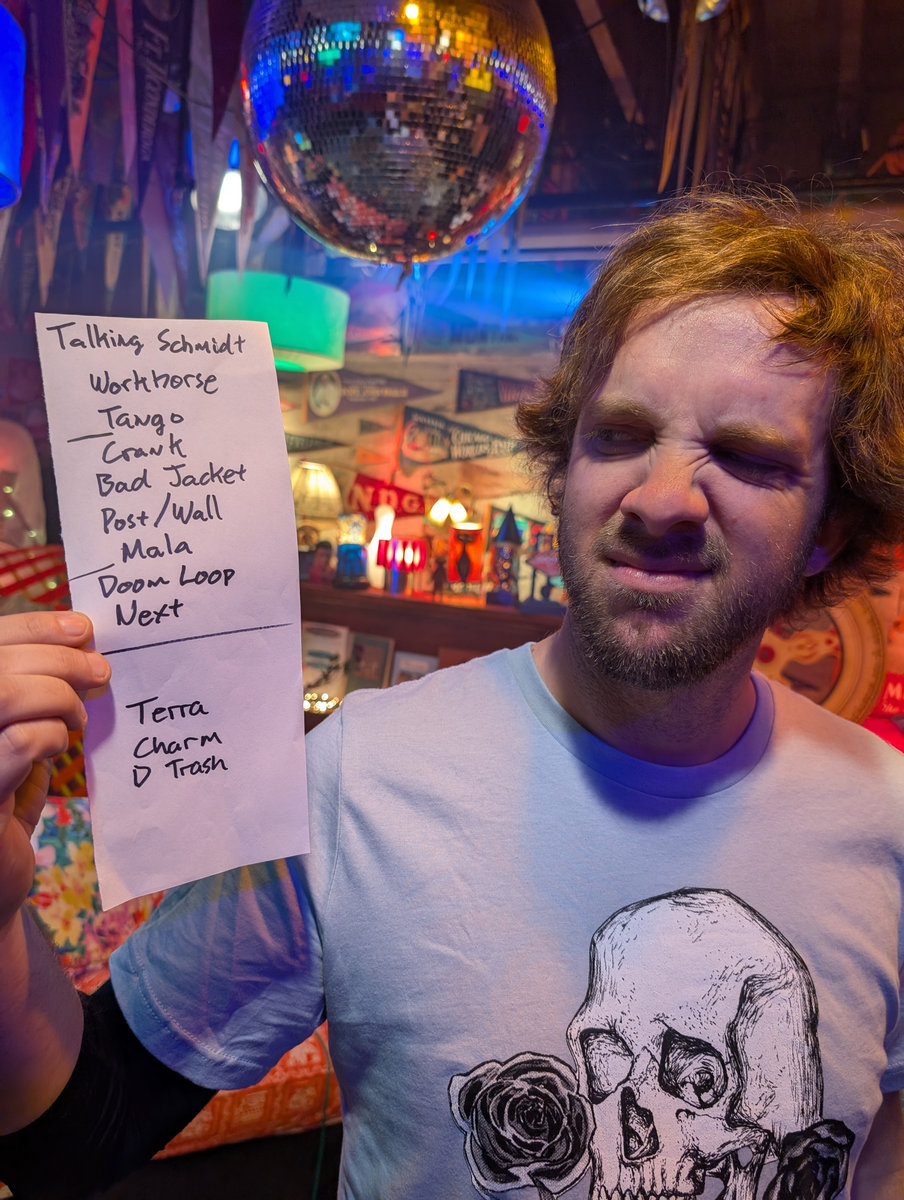 Talking Schmidt
Workhorse
Tango
Crank
Bad Jacket
Post/Wall
Mala
Doom Loop
Next
Terra
Charm
D Trash
NDG